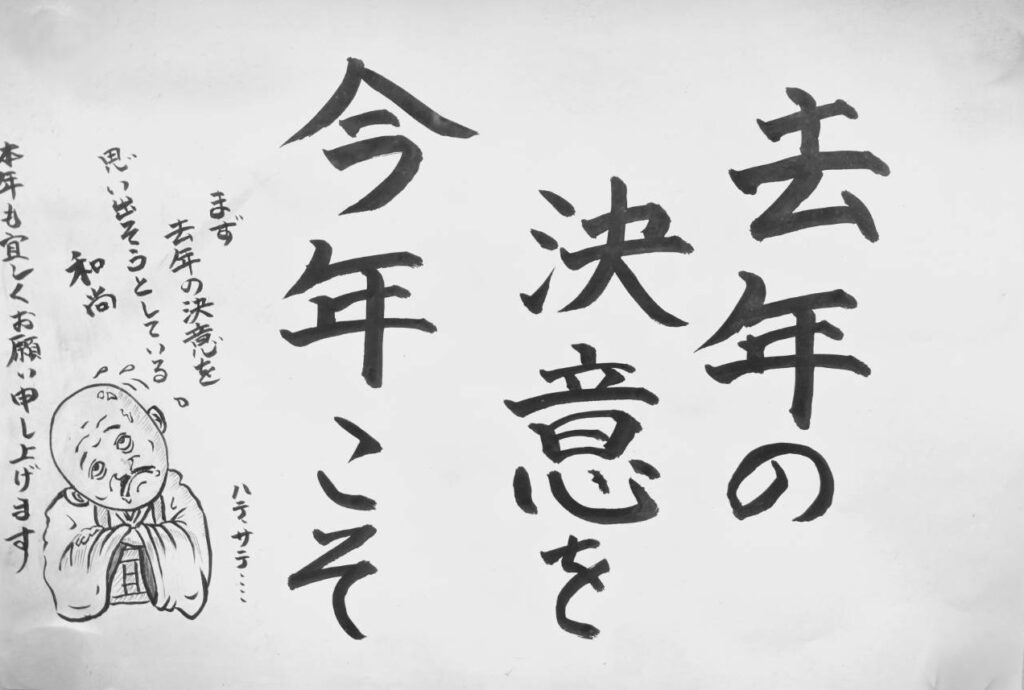 去年の
決意を
今年こそ
まず
去年の決意を
思い出そうとしている
和尚
ハテ、サテ……
本年も宜しくお願い申し上げます